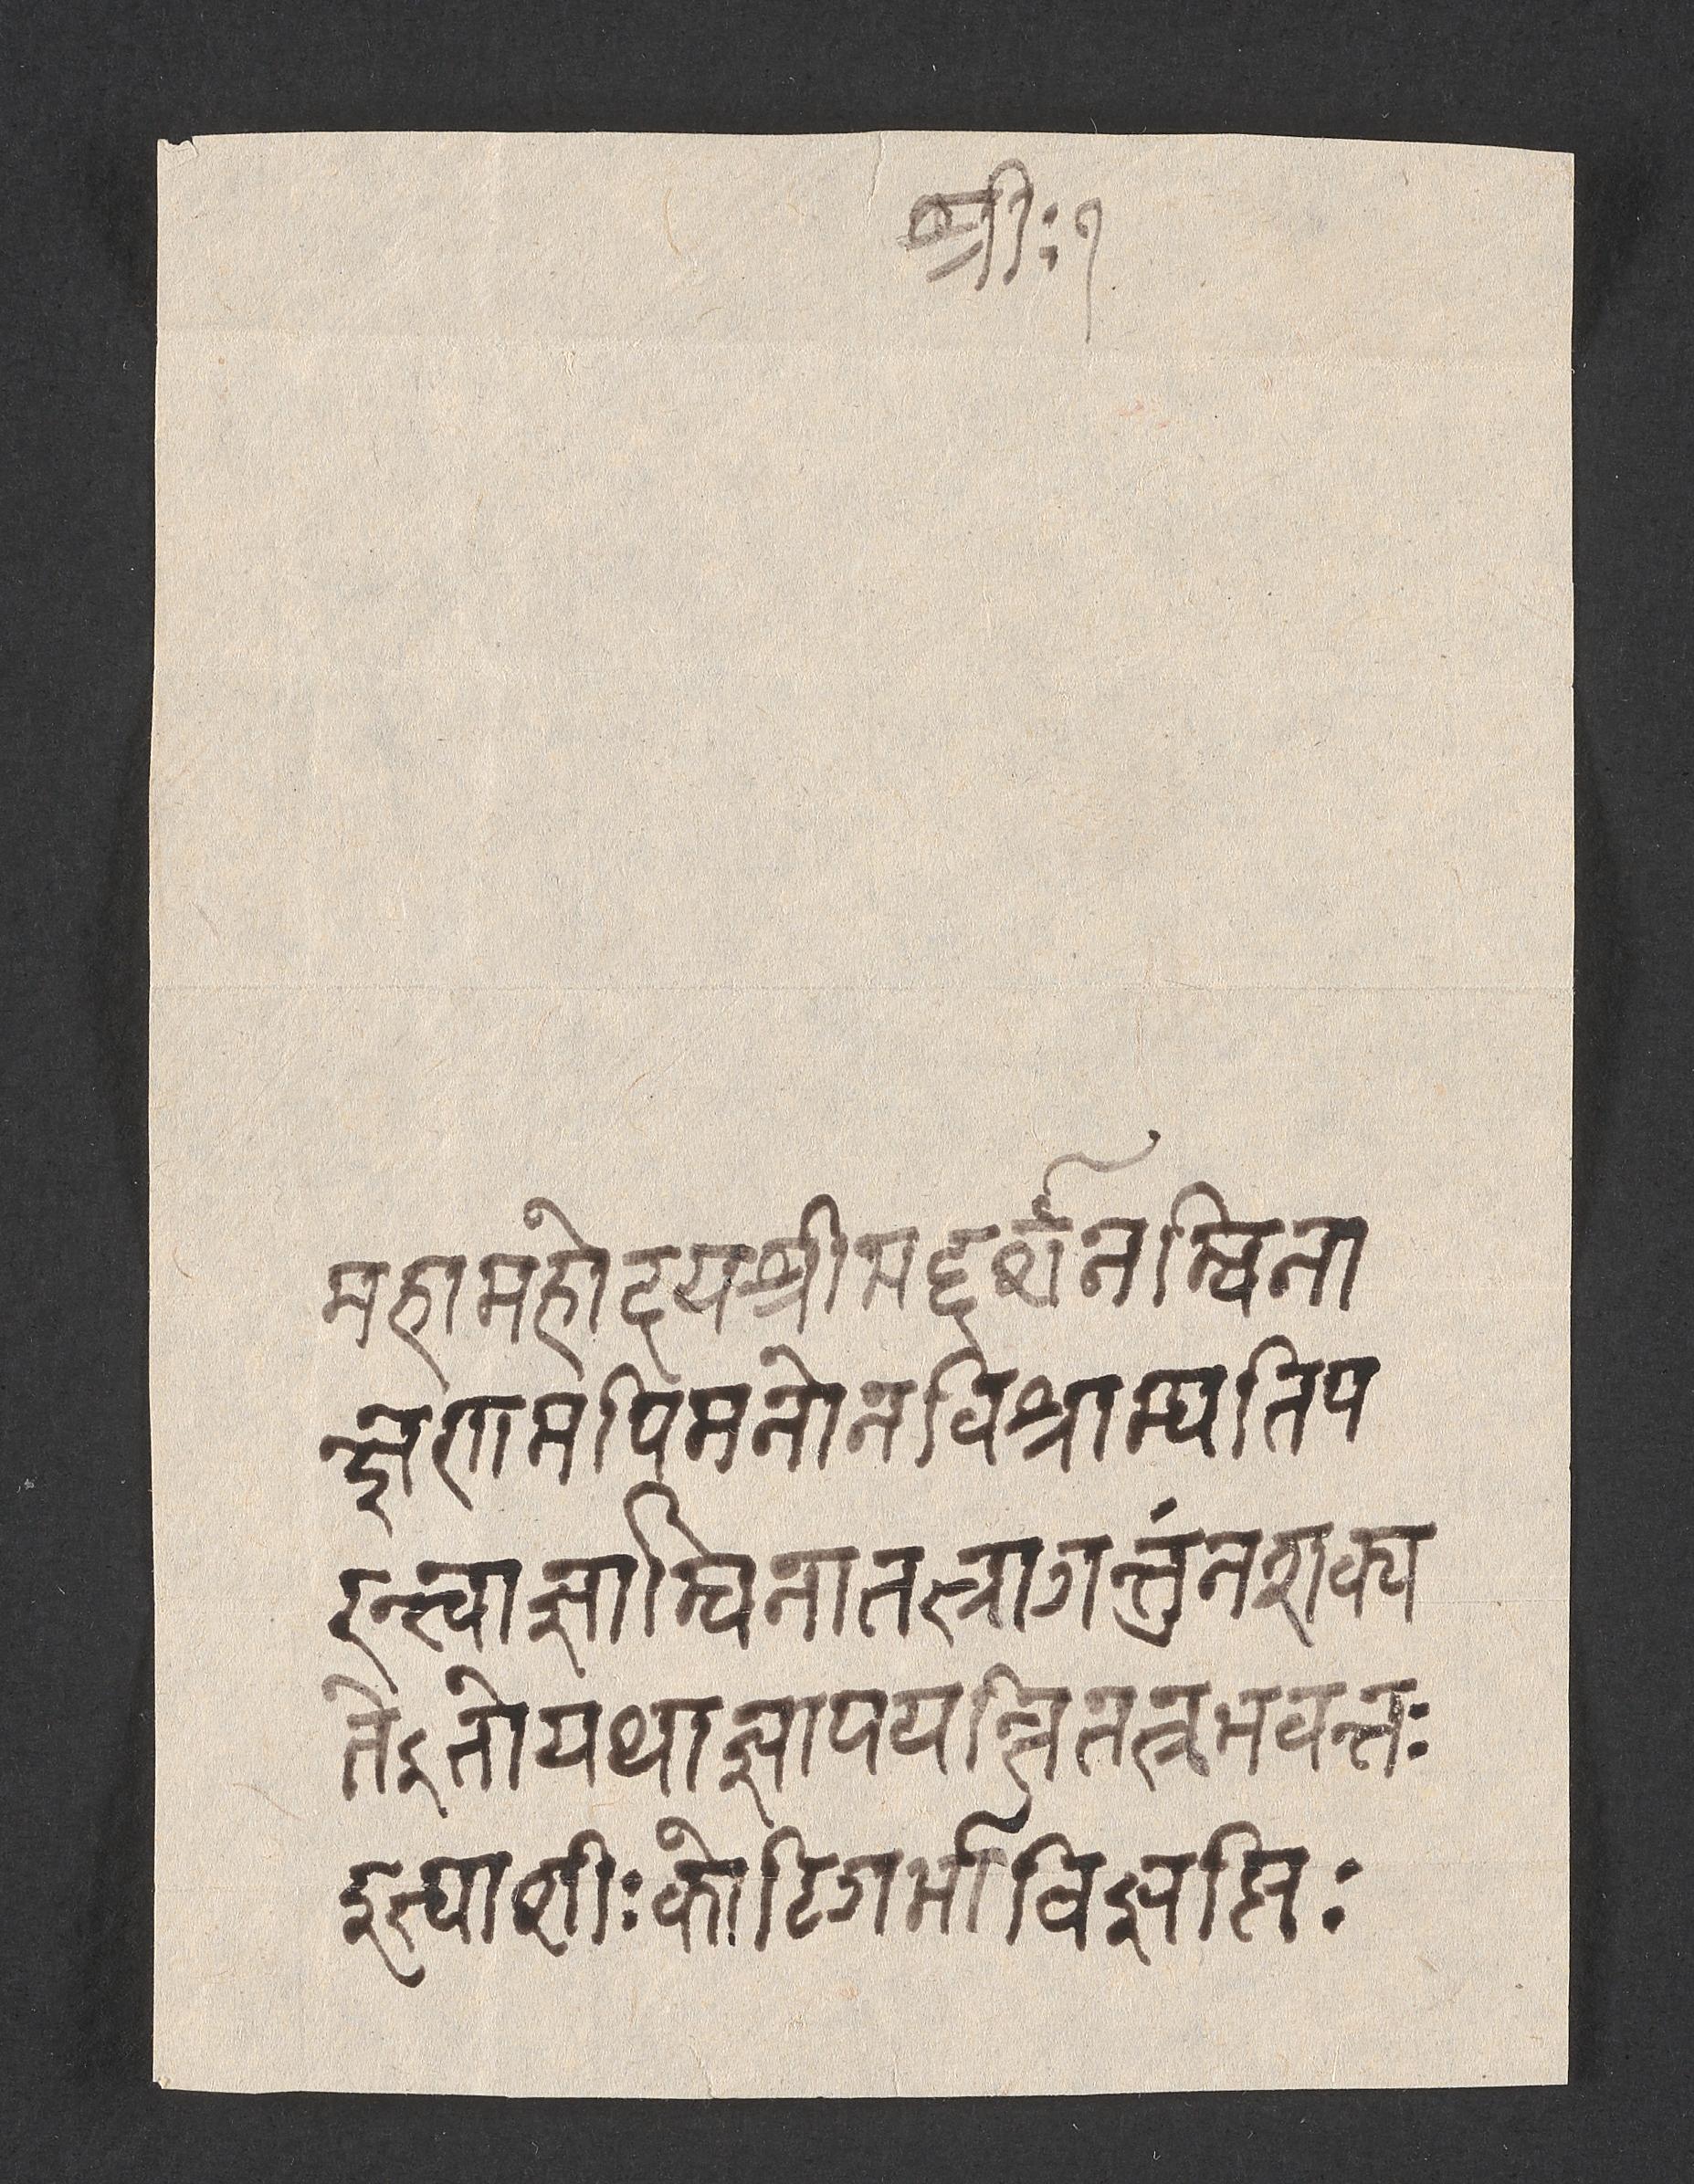 श्रीः१
महामहोदयश्रीमद्दर्शनम्बिना
क्षणमपिमनोनविश्राम्यतिप
रन्त्वाज्ञाम्बिनातत्त्रागन्तुंनशक्य
तेऽतोयथाज्ञापयन्तितत्रभवन्तः
इत्याशीःकोटिगर्भाविज्ञप्तिः